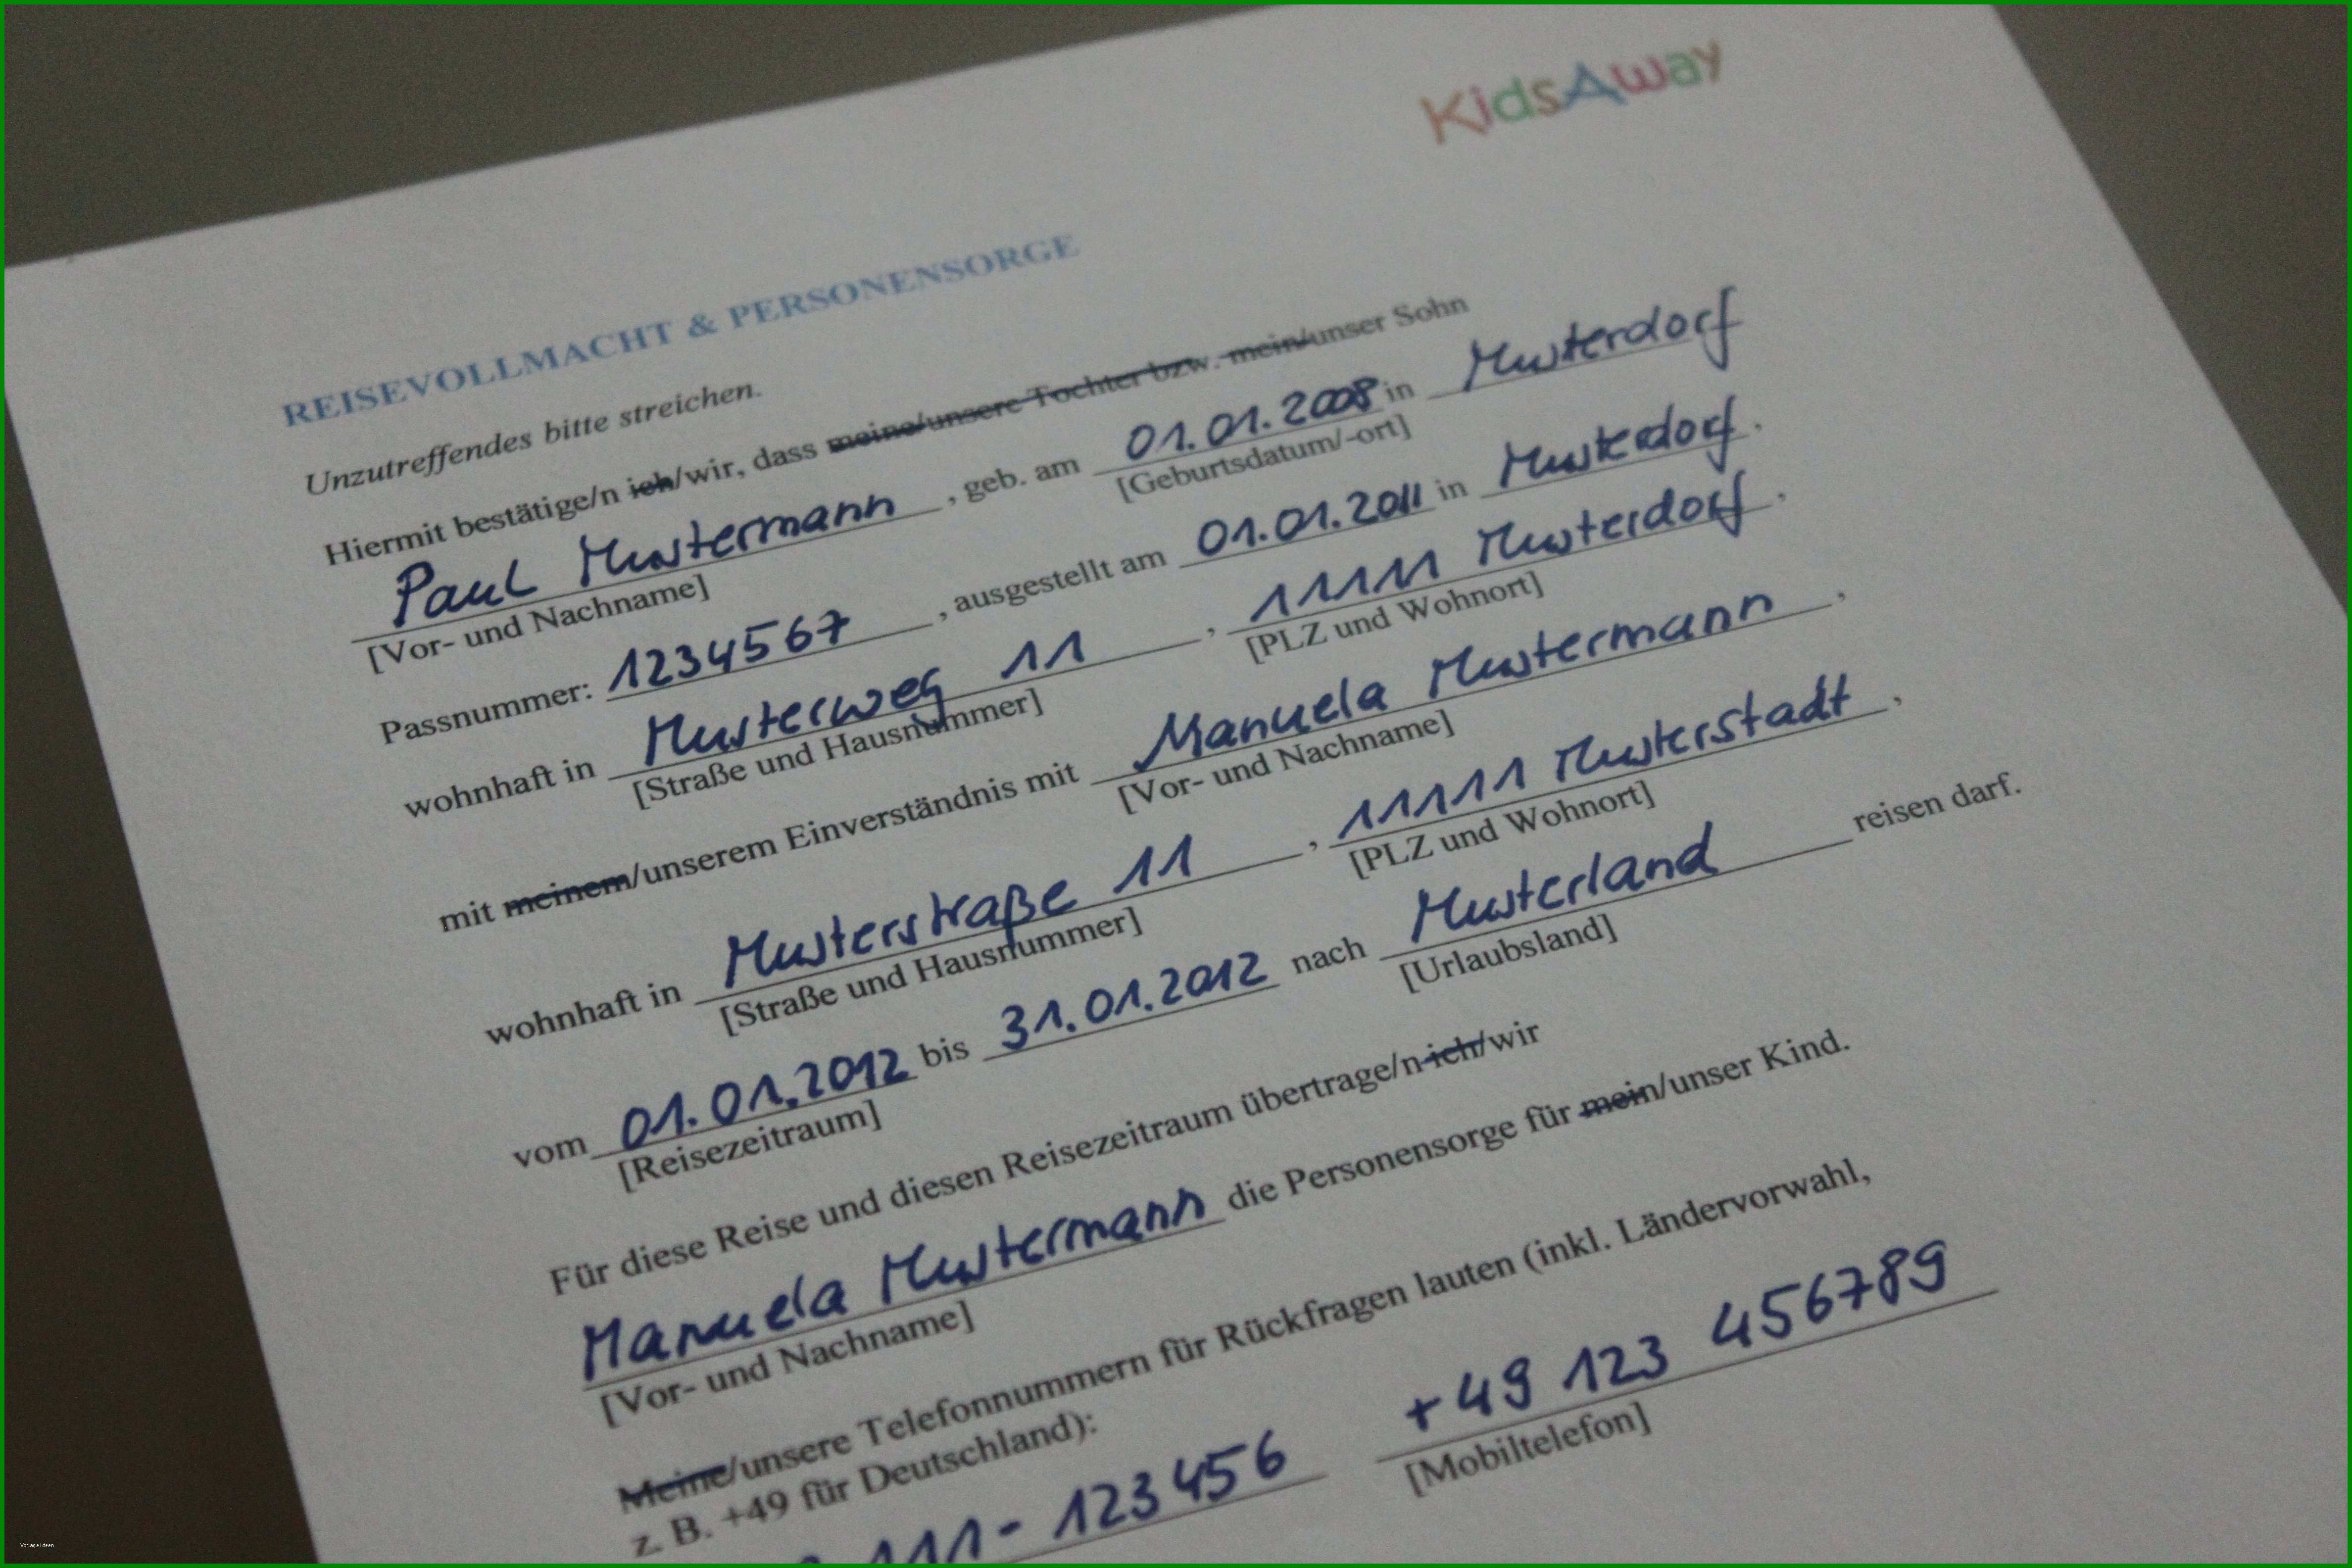 KidsAway
REISEVOLLMACHT & PERSONENSORGE
Unzutreffendes bitte streichen.
Hiermit bestätige/n ich/wir, dass meine/unsere Tochter bzw. mein/unser Sohn
Paul Mustermann, geb. am 01.01.2008 in Musterdorf
[Vor- und Nachname] [Geburtsdatum/-ort]
Passnummer: 1234567, ausgestellt am 01.01.2011 in Musterdorf.
wohnhaft in Musterweg 11, 11111 Musterdorf,
[Straße und Hausnummer] [PLZ und Wohnort]
mit meinem/unserem Einverständnis mit Manuela Mustermann,
[Vor- und Nachname]
wohnhaft in Musterstraße 11, 11111 Musterstadt,
[Straße und Hausnummer] [PLZ und Wohnort]
vom 01.01.2012 bis 31.01.2012 nach Musterland reisen darf.
[Reisezeitraum] [Urlaubsland]
Für diese Reise und diesen Reisezeitraum übertrage/n ich/wir
Manuela Mustermann die Personensorge für mein/unser Kind.
[Vor- und Nachname]
Meine/unsere Telefonnummern für Rückfragen lauten (inkl. Ländervorwahl,
z. B. +49 für Deutschland):
111-123456 +49 123 456789
[Mobiltelefon]
Vorlage Ideen